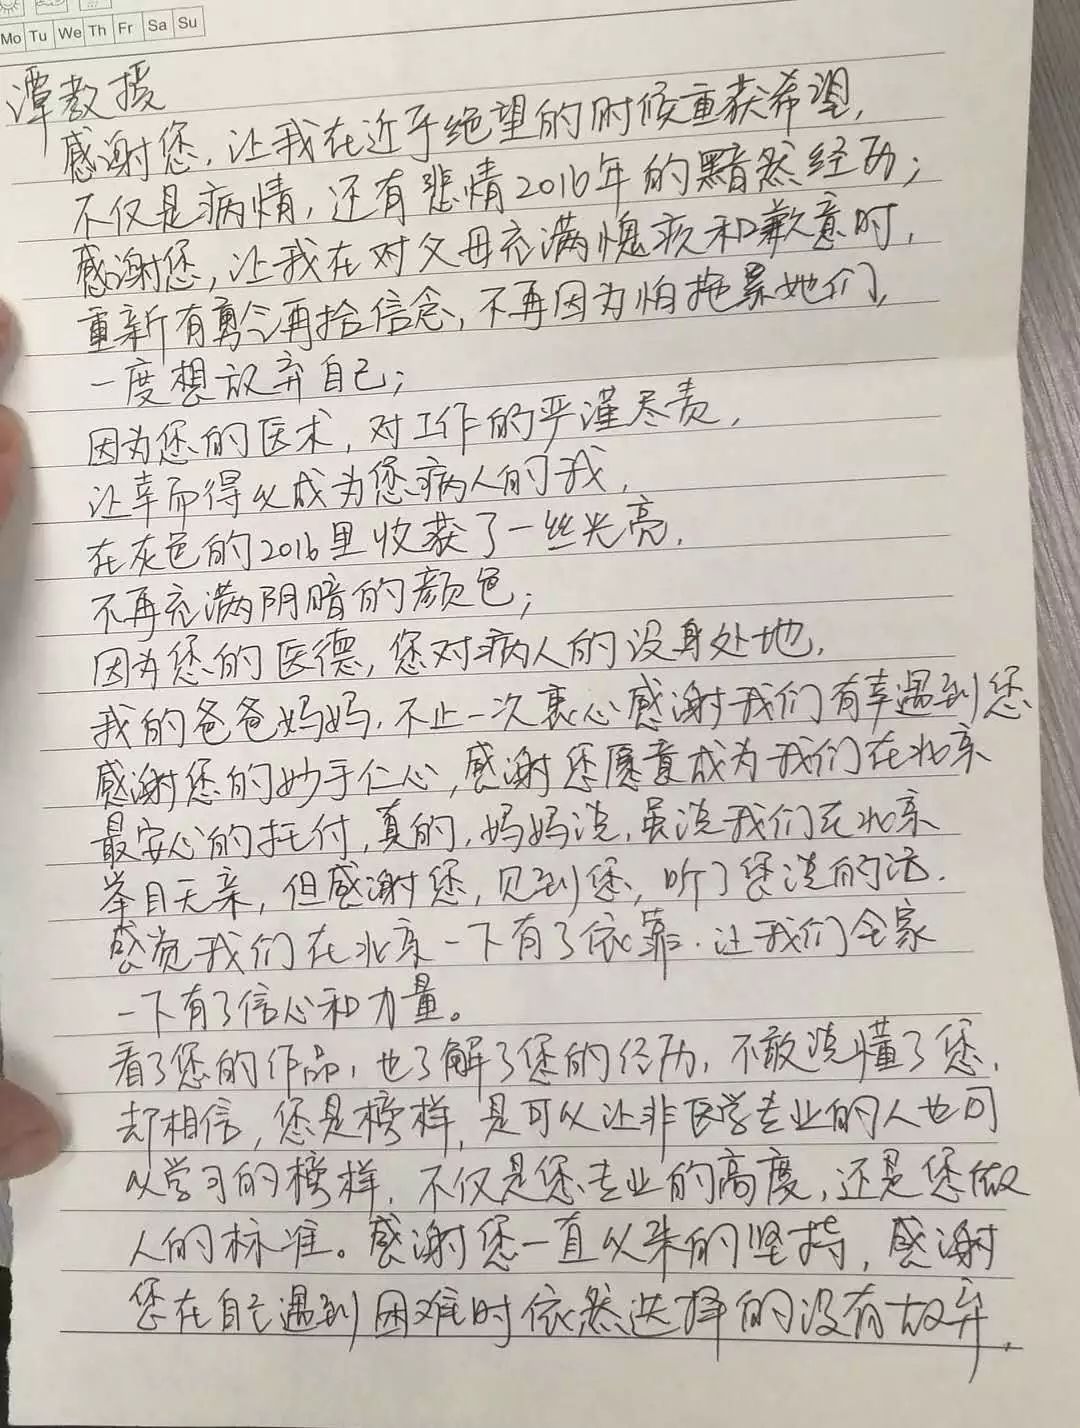 Mo Tu We Th Fr Sa Su
谭教授
感谢您,让我在近乎绝望的时候重获希望,
不仅是病情,还有悲情2016年的黯然经历;
感谢您,让我在对父母充满愧疚和歉意时,
重新有勇气再拾信念,不再因为怕拖累她们,
一度想放弃自己;
因为您的医术,对工作的严谨尽责,
让幸而得以成为您病人的我,
在灰色的2016里收获了一丝光亮,
不再充满阴暗的颜色;
因为您的医德,您对病人的设身处地,
我的爸爸妈妈,不止一次衷心感谢我们有幸遇到您
感谢您的妙手仁心,感谢您愿意成为我们在北京
最安心的托付,真的,妈妈说,虽说我们在北京
举目无亲,但感谢您,见到您,听了您说的话.
感觉我们在北京一下有了依靠.让我们全家
一下有了信心和力量。
看了您的作品,也了解了您的经历,不敢说懂了您,
却相信,您是榜样,是可以让非医学专业的人也可
以学习的榜样,不仅是您专业的高度,还是您做
人的标准。感谢您一直以来的坚持,感谢
您在自己遇到困难时依然选择的没有放弃.